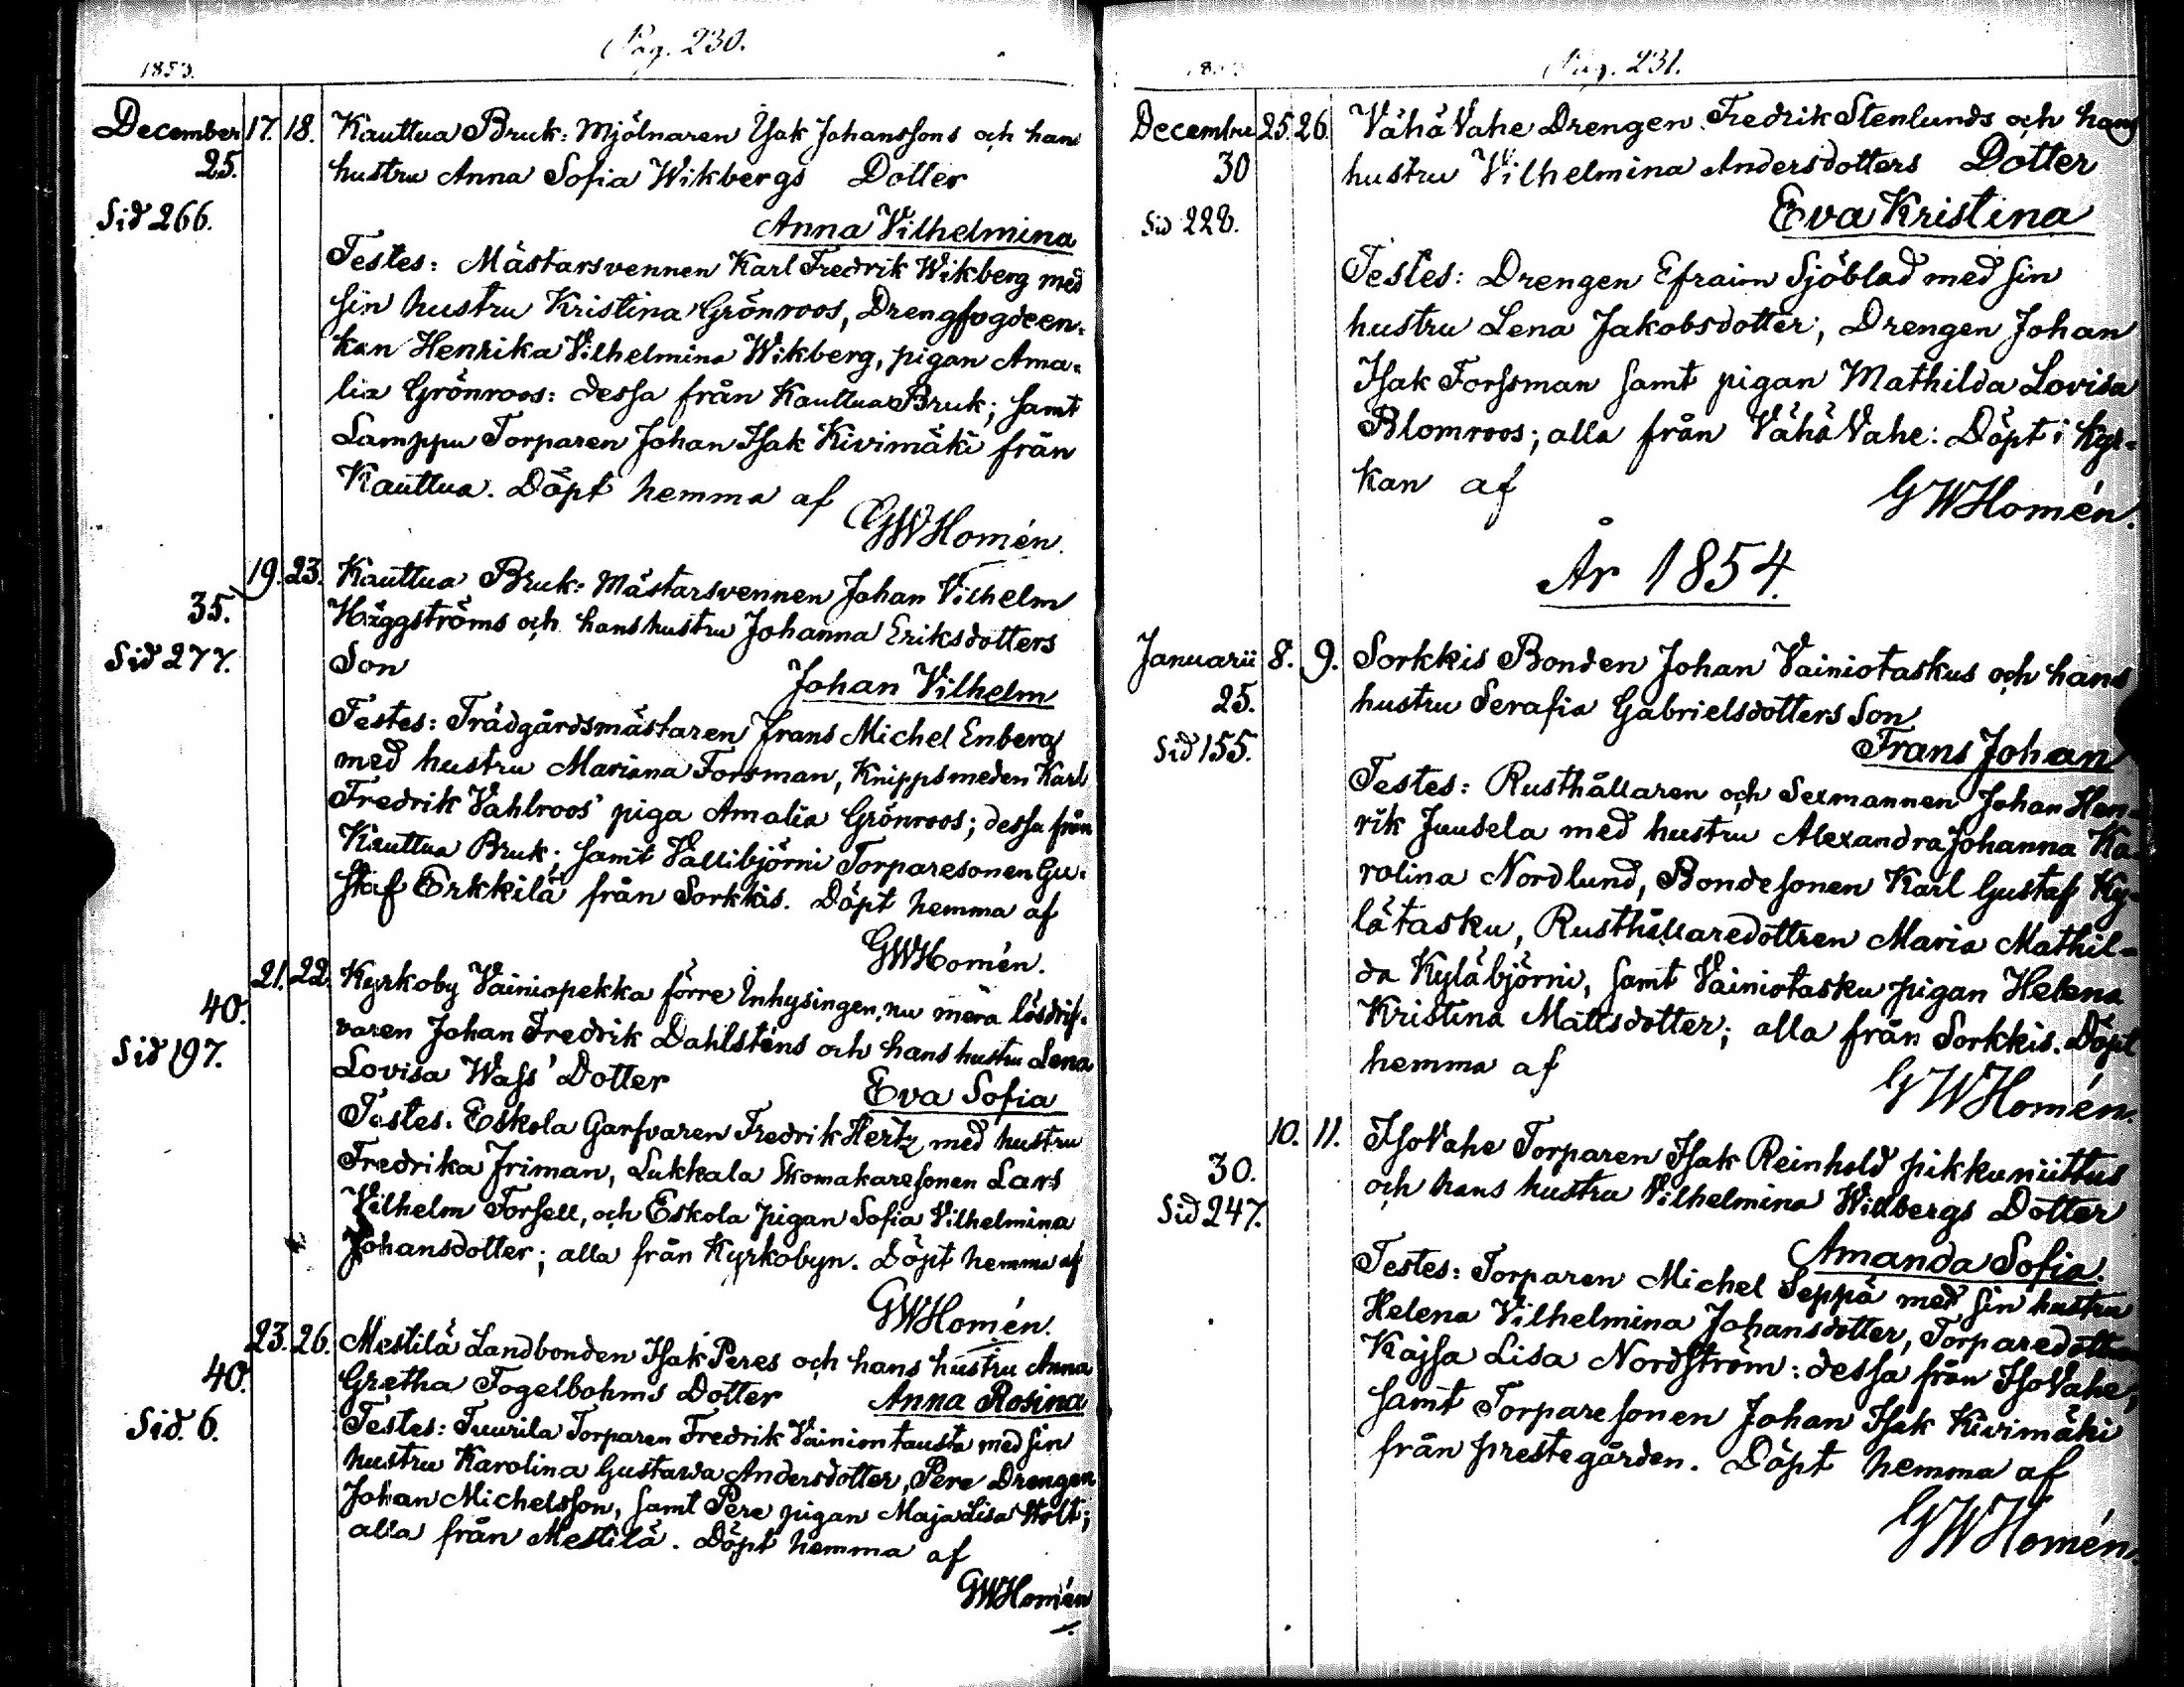 Pag. 230.
1853.
December 17. 18. Kauttua Bruk: Mjölnaren Isak Johanssons och hans
25. hustru Anna Sofia Wikbergs Dotter
Sid 266. Anna Vilhelmina
Testes: Mästarsvennen Karl Fredrik Wikberg med
sin hustru Kristina Grönroos, Drengfogdeen-
kan Henrika Vilhelmina Wikberg, pigan Ama-
lia Grönroos: dessa från Kauttua Bruk; samt
Lamppu Torparen Johan Isak Kivimäki från
Kauttua. Döpt hemma af
GWHomén.
19. 23. Kauttua Bruk: Mästarsvennen Johan Vilhelm
35. Häggströms och hans hustru Johanna Eriksdotters
Sid 277. Son Johan Vilhelm
Testes: Trädgårdsmästaren Frans Michel Enberg
med hustru Mariana Forsman, Knippsmeden Karl
Fredrik Vahlroos' piga Amalia Grönroos; dessa från
Kauttua Bruk; samt Vällibjörni Torparesonen Gu-
staf Erkkilä från Sorkkis. Döpt hemma af
GWHomén.
21. 22. Kyrkoby Vainiopekka förre Inhysingen, nu mera lösdrif-
40. varen Johan Fredrik Dahlsténs och hans hustru Lena
Sid 197. Lovisa Wass' Dotter Eva Sofia
Testes. Eskola Garfvaren Fredrik Hertz med hustru
Fredrika Friman, Lukkala Skomakaresonen Lars
Vilhelm Forsell, och Eskola pigan Sofia Vilhelmina
Johansdotter; alla från Kyrkobyn. Döpt hemma af
GWHomén.
23. 26. Mestilä Landbonden Isak Peres och hans hustru Anna
40. Gretha Fogelbohms Dotter Anna Rosina
Sid. 6. Testes: Tuurila Torparen Fredrik Vainiontausta med sin
hustru Karolina Gustawa Andersdotter, Pere Drengen
Johan Michelsson, samt Pere pigan Maja Lisa Stolt;
alla från Mestilä. Döpt hemma af
GWHomén
Pag. 231.
December 25. 26. Vähä Vahe Drengen Fredrik Stenlunds och hans
30 hustru Vilhelmina Andersdotters Dotter
Sid 228. Eva Kristina
Testes: Drengen Efraim Sjöblad med sin
hustru Lena Jakobsdotter; Drengen Johan
Isak Forssman samt pigan Mathilda Lovisa
Blomroos; alla från Vähä Vahe: Döpt i Kyr-
kan af GWHomén.
År 1854.
Januarii 8. 9. Sorkkis Bonden Johan Vainiotaskus och hans
25. hustru Serafia Gabrielsdotters Son
Sid 155. Frans Johan
Testes: Rusthållaren och Sexmannen Johan Hen-
rik Juusela med hustru Alexandra Johanna Ka-
rolina Nordlund, Bondesonen Karl Gustaf Ky-
lätasku, Rusthållaredottren Maria Mathil-
da Kyläbjörni, samt Vainiotasku pigan Helena
Kristina Mattsdotter; alla från Sorkkis. Döpt
hemma af GWHomén.
10. 11. Iso Vahe Torparen Isak Reinhold pikkuniittus
30. och hans hustru Vilhelmina Widbergs Dotter
Sid 247. Amanda Sofia.
Testes: Torparen Michel Seppä med sin hustru
Helena Vilhelmina Johansdotter, Torparedottren
Kajsa Lisa Nordström: dessa från Iso Vahe,
samt Torparesonen Johan Isak Kivimäki
från prestegården. Döpt hemma af
GWHomén.